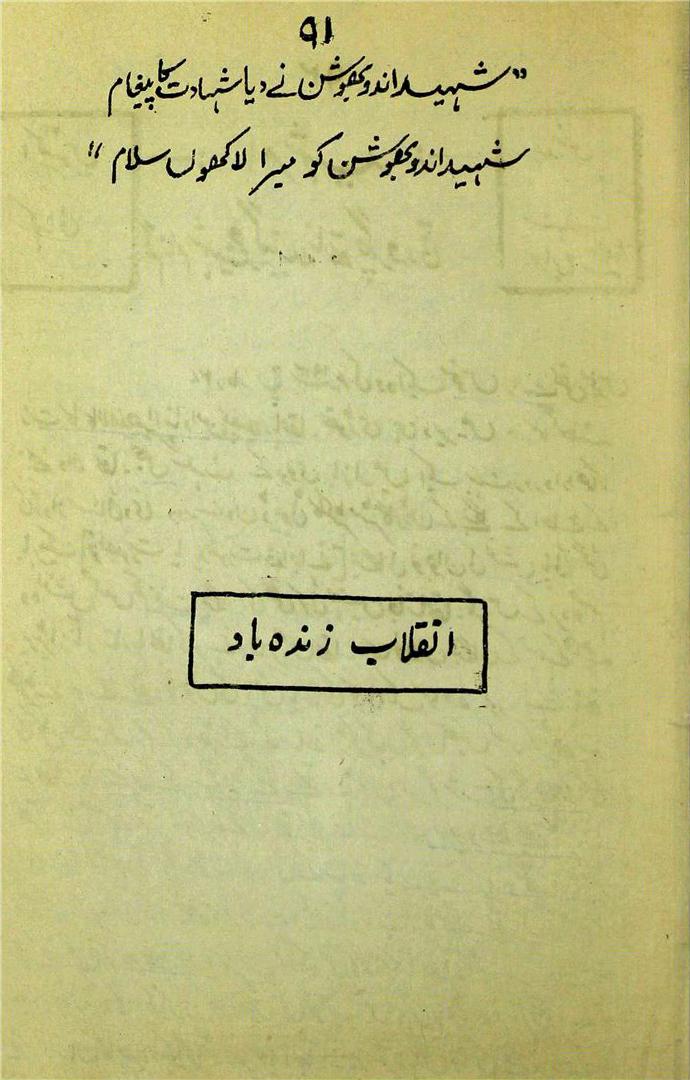 ۹۱
"شہید اندو بھوشن نے دیا شہادت کا پیغام
شہید اندو بھوشن کو میرا لاکھوں سلام"
انقلاب زندہ باد